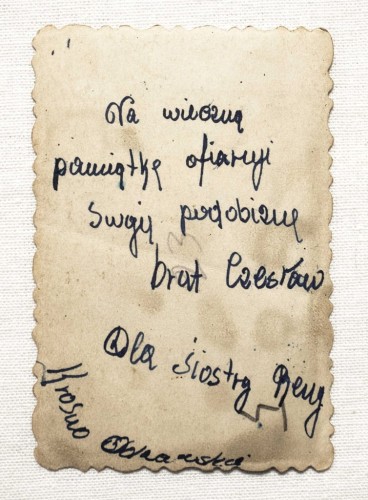 Na wieczną
pamiątkę ofiaruji
swoję podobiznę
brat Czesław
Dla siostry Reny
Krosno